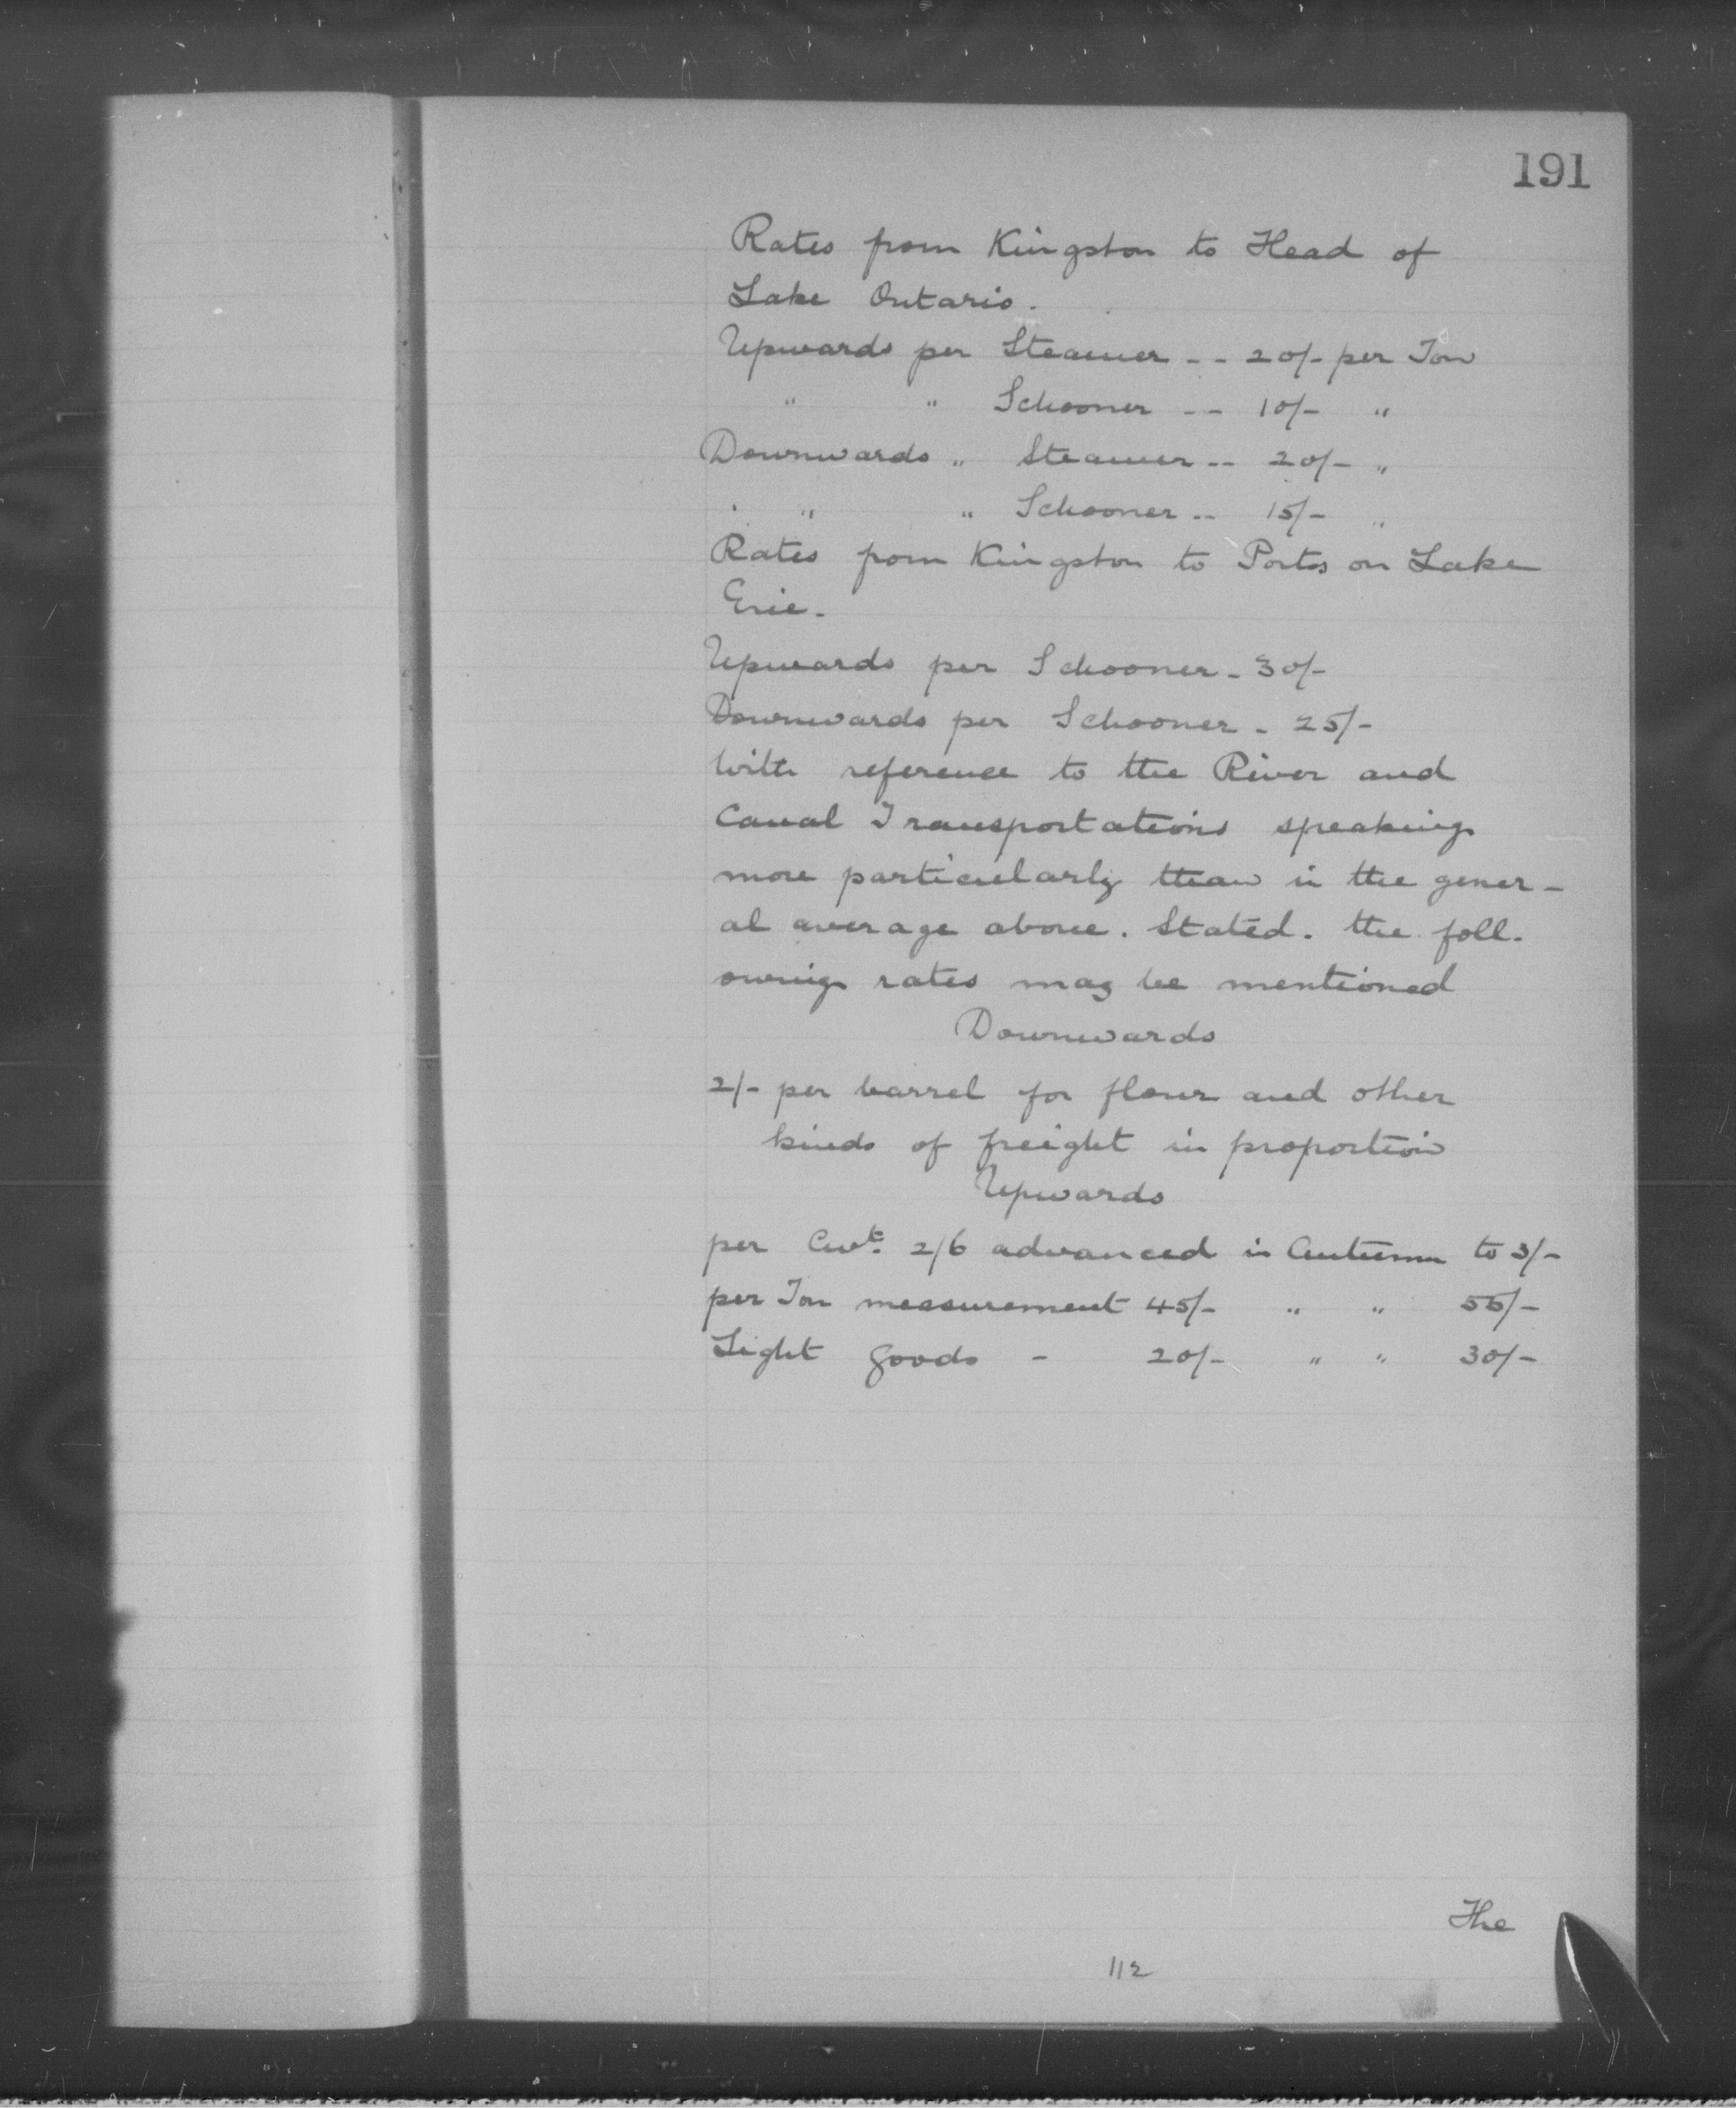 191
Rates from Kingston to Head of
Lake Ontario.
Upwards per Steamer -- 20/- per Ton
" " Schooner -- 10/- "
Downwards " Steamer -- 20/- "
" " Schooner -- 15/- "
Rates from Kingston to Ports on Lake
Erie.
Upwards per Schooner - 30/-
Downwards per Schooner - 25/-
With reference to the River and
Canal Transportations speaking
more particularly than in the gener-
al average above. Stated. the foll-
owing rates may be mentioned
Downwards
2/- per barrel for flour and other
kinds of freight in proportion
Upwards
per Cwt. 2/6 advanced in Autumn to 3/-
per Ton measurement 45/- " " 55/-
Light goods - 20/- " " 30/-
The
112